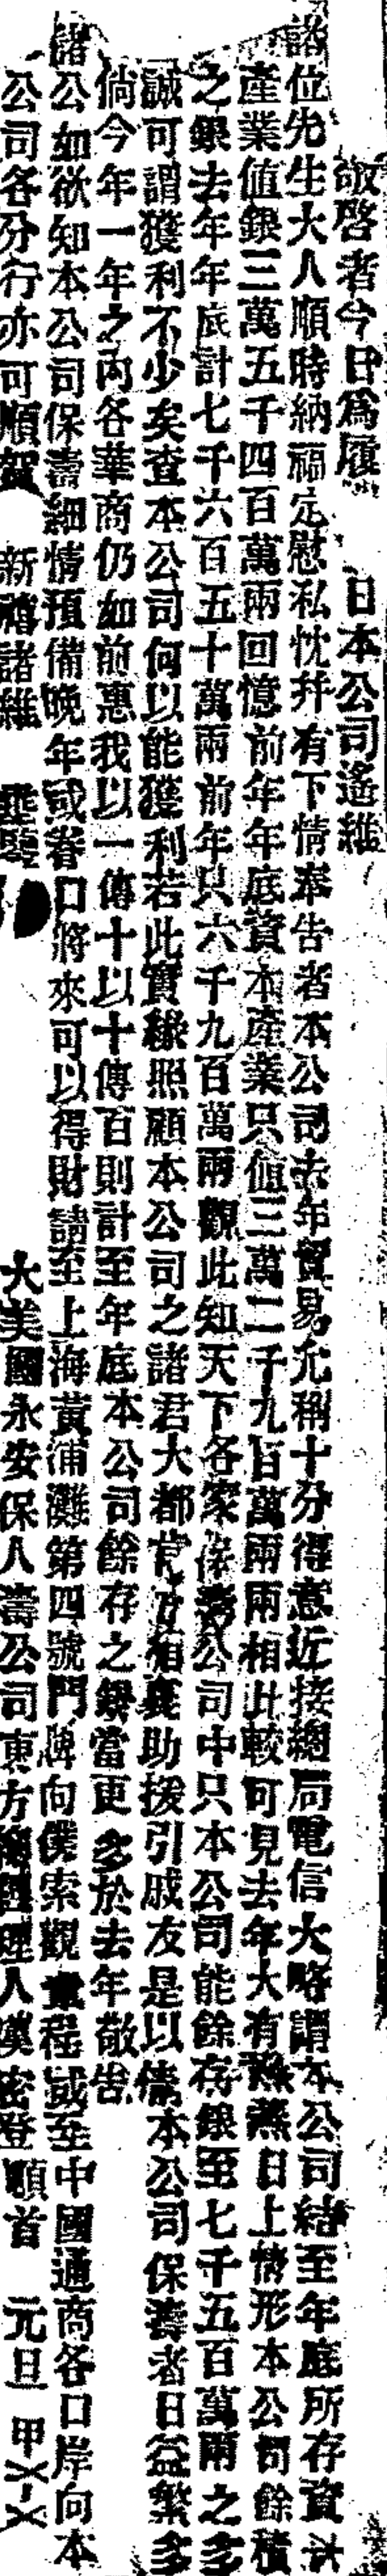 敬啓者今日爲履　日本公司遙維
諸位先生大人順時納福定慰私忱幷有下情奉告者本公司去年貿易允稱十分得意近接總局電信大略謂本公司結至年底所存資
產業値銀三萬五千四百萬兩回憶前年年底資本產業只値三萬二千九百萬兩兩相比較可見去年大有蒸蒸日上情形本公司餘積
之銀去年年底計七千六百五十萬兩前年只六千九百萬兩觀此知天下各家保壽公司中只本公司能餘存銀至七千五百萬兩之多
誠可謂獲利不少矣查本公司何以能獲利若此實緣照顧本公司之諸君大都襄助援引戚友是以本公司保壽者日益繁多
倘今年一年之內各華商仍如前惠我以一傳十以十傳百則計至年底本公司餘存之銀當更多於去年敬告
諸公如欲知本公司保壽細情預備晚年或眷口將來可以得財請至上海黃浦灘第四號門牌向僕索觀章程或至中國通商各口岸向本
公司各分行亦可順賀　新禧諸維　垂鑒　大美國永安保人壽公司東方總經理人密登頓首　元旦　甲